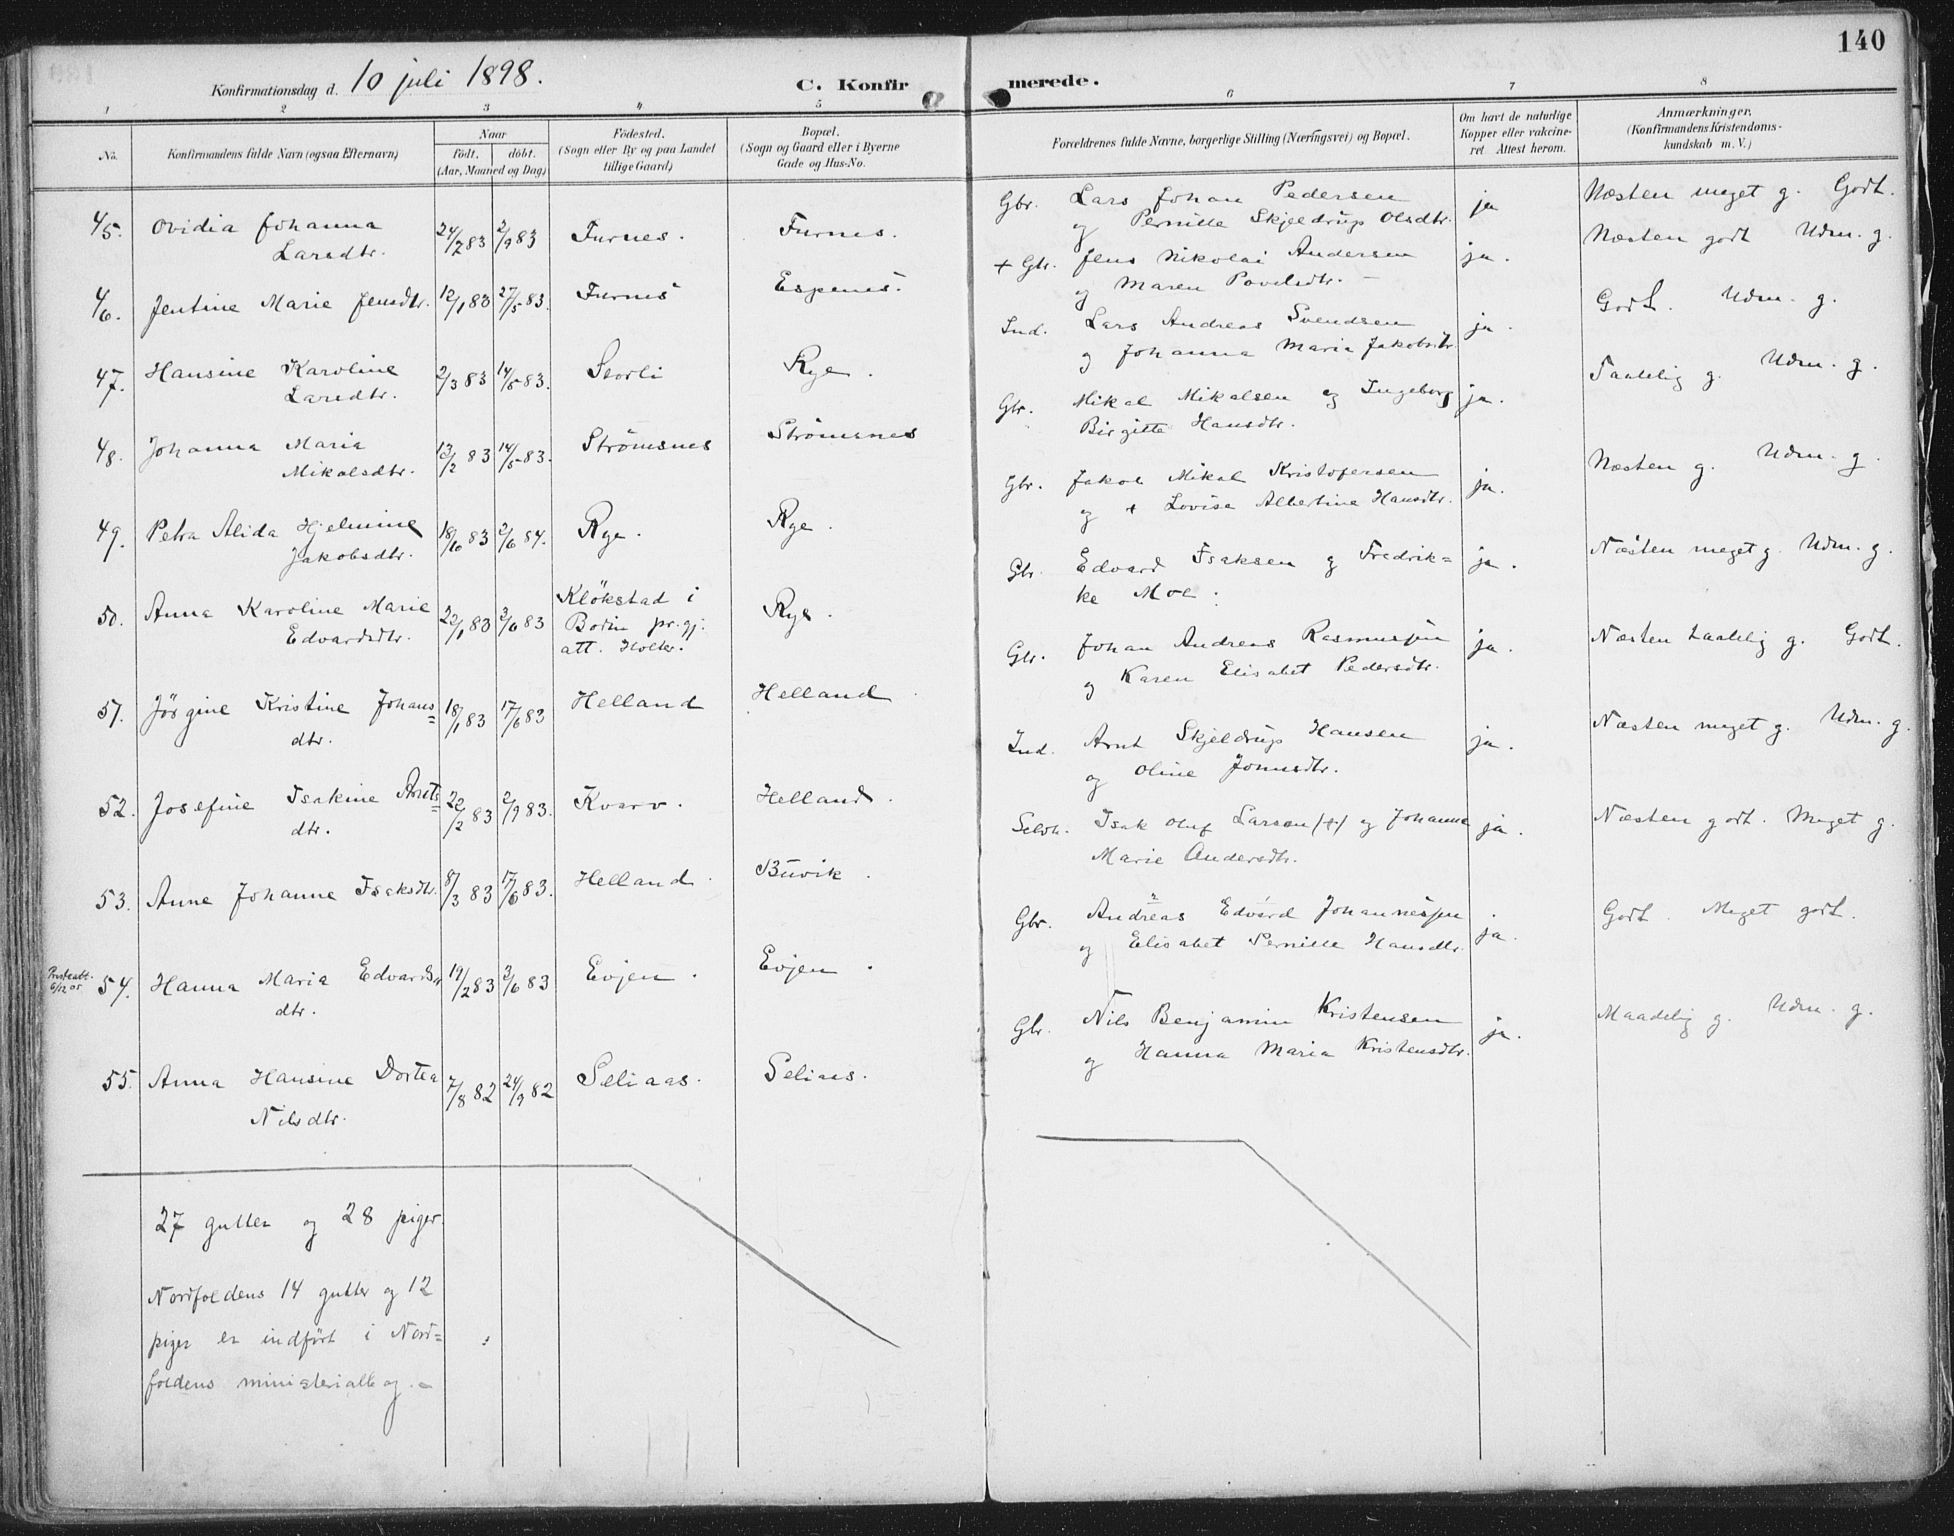 140
Konfirmationsdag d. 10 juli 1898. C. Konfirmerede.
1 2 3 4 5 6 7 8
No. Konfirmandens fulde Navn (ogsaa Efternavn) Naar födt. döbt. (Aar, Maaned og Dag) Födested. (Sogn eller By og paa Landet tillige Gaard) Bopæl. (Sogn og Gaard eller i Byerne Gade og Hus-No. Forældrenes fulde Navne, borgerlige Stilling (Næringsvei) og Bopæl. Om havt de naturlige Kopper eller vakcineret Attest herom. Anmærkninger. (Konfirmandens Kristendomskundskab m. V.)
45. Ovidia Johanna 24/7 83 2/9 83 Furnes. Furnes. Gbr. Lars Johan Pedersen ja Næsten meget g. Godt.
Larsdtr. og Pernille Skjeldrup Olsdtr.
46. Jentine Marie Jensdtr. 12/1 83 27/5 83. Furnes Espenes. + Gbr. Jens Nikolai Andersen ja. Næsten godt Udm. g.
og Maren Povelsdtr. —
47. Hansine Karoline 2/3 83 14/5 83. Storli Rye. Ind. Lars Andreas Svendsen ja. Godt. Udm. g.
Larsdtr. og Johanna Maria Jakobsdtr
48. Johanna Maria 13/2 83 14/5 83. Strömsnes Strömsnes Gbr. Mikal Mikalsen og Ingeborg ja. Taalelig g. Udm. g.
Mikalsdtr. Birgitte Hansdtr.
49. Petra Alida Hjelmine 18/10 83 2/6 84. Rye. Rye. Gbr. Jakob Mikal Kristofersen ja. Næsten g. Udm. g.
Jakobsdtr. og + Lovise Albertine Hansdtr.
50. Anna Karoline Marie 22/1 83 3/6 83 Klökstad i Rye. Gbr. Edvard Isaksen og Fredrik= ja. Næsten meget g. Udm. g.
Edvardsdtr. Bodin pr. gj. ke Moe.
att. Holter.
51. Jörgine Kristine Johans= 18/1 83 17/6 83 Helland Helland Gbr. Johan Andreas Rasmussen ja. Næsten taalelig g. Godt.
dtr. og Karen Elisabet Pedersdtr.
52. Josefine Isakine Arnts= 22/2 83 2/9 83. Kvarv. Helland. Ind. Arnt Skjeldrup Hansen ja. Næsten meget g. Udm. g.
dtr. og Oline Jonusdtr.
53. Anne Johanne Isaksdtr. 8/3 83 17/6 83. Helland. Buvik. Selvh. Isak Oluf Larsen (+) og Johanne ja. Næsten godt. Meget g.
Marie Andersdtr.
Prsteatt. 6/12 05 54. Hanna Maria Edvards 19/2 83 3/6 83 Evjen. Evjen. Gbr. Andreas Edvard Johannessen ja. Godt. Meget godt.
dtr. og Elisabet Pernille Hansdtr.
55. Anna Hansine Dortea 7/8 82 24/9 82 Seliaas. Seliaas. Gbr. Nils Benjamin Kristensen ja. Maadelig g. Udm. g.
Nilsdtr. og Hanna Maria Kristensdtr.
27 gutter og 28 piger.
Nordfoldens 14 gutter og 12
piger er indfört i Nord=
foldens ministerialbog. -